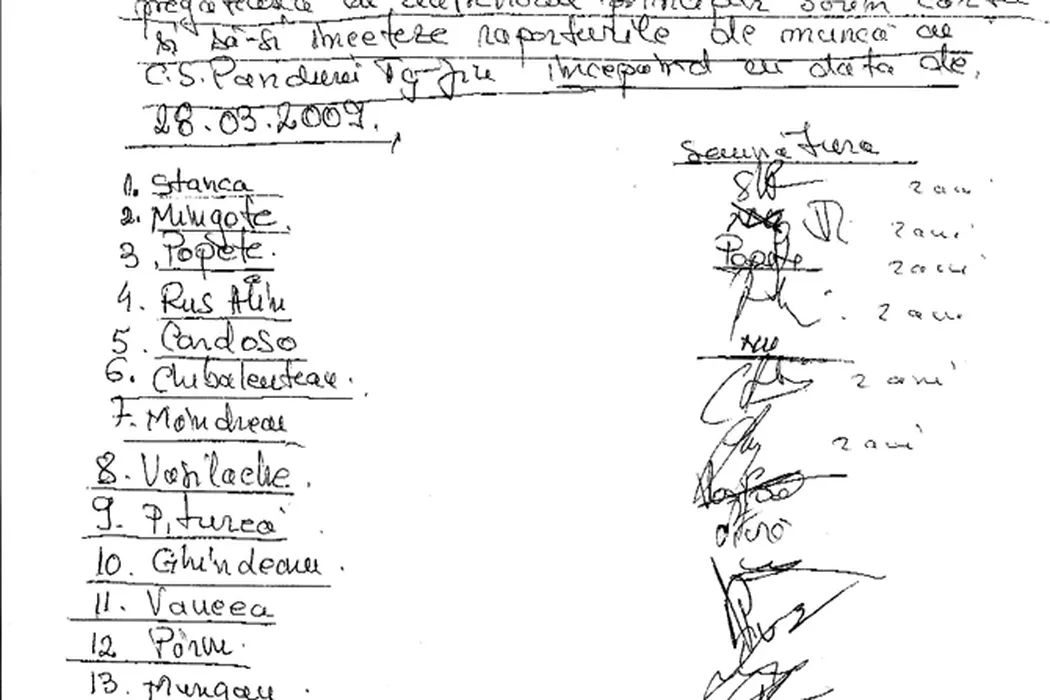 și să-și înceteze raporturile de muncă cu
C.S. Pandurii Tg-Jiu începând cu data de,
28.03.2009.
Semnătura
1. Stanca 2 ani
2. Mingote. 2 ani
3. Popete. Popete 2 ani
4. Rus Alin 2 ani
5. Cardoso nu
6. Chibalentean. 2 ani
7. Moindrean 2 ani
8. Vasilache.
9. Piturcă
10. Ghindeanu.
11. Vancea
12 Pârvu.
13. Mungan.